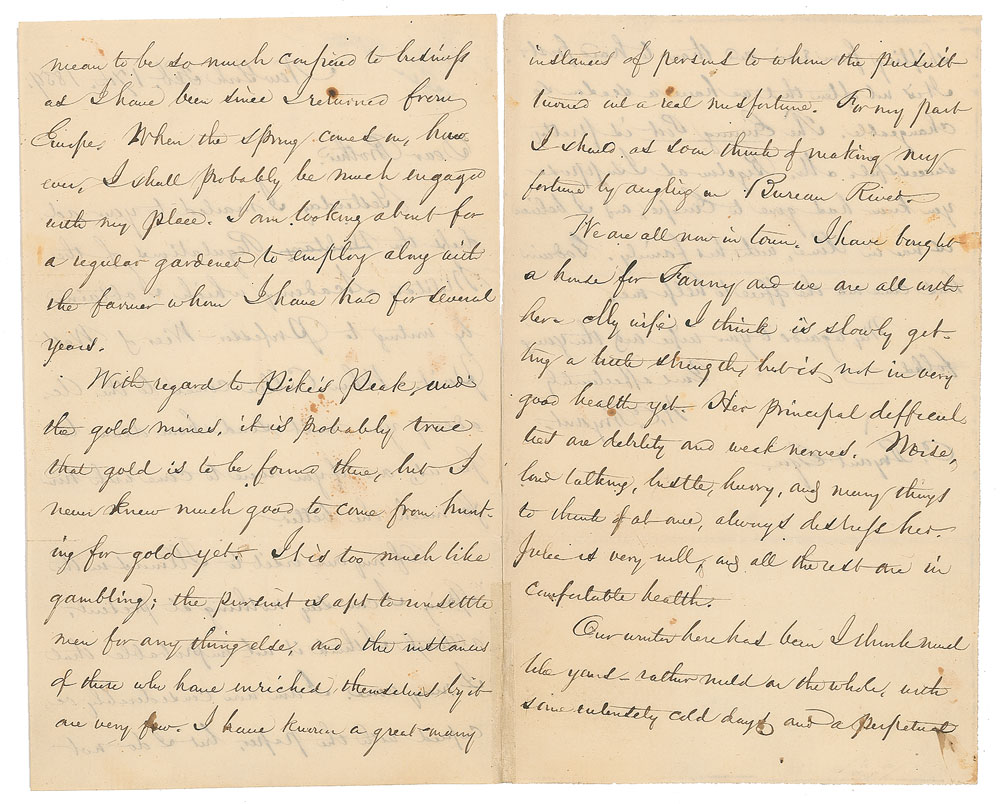 mean to be so much confined to business
as I have been since I returned from
Europe. When the spring comes on, how
ever, I shall probably be much engaged
with my place. I am looking about for
a regular gardener to employ along with
the farmer whom I have had for several
years.
With regard to Pike's Peak, and
the gold mines, it is probably true
that gold is to be found there, but I
never knew much good to come from hunt-
ing for gold yet. It is too much like
gambling; the pursuit is apt to unsettle
men for any thing else, and the instances
of those who have enriched themselves by it
are very few. I have known a great many
instances of persons to whom the pursuit
turned out a real misfortune. For my part
I should as soon think of making my
fortune by angling in Bureau River.
We are all now in town. I have bought
a house for Fanny and we are all with
her. My wife I think is slowly get-
ting a little strength, but is not in very
good health yet. Her principal difficul
ties are debility and weak nerves. Noise,
loud talking, bustle, hurry, and many things
to think of at once, always distress her.
Julia is very well, and all the rest are in
comfortable health.
Our winter here has been I think much
like yours – rather mild on the whole, with
some intensely cold days and a perpetual